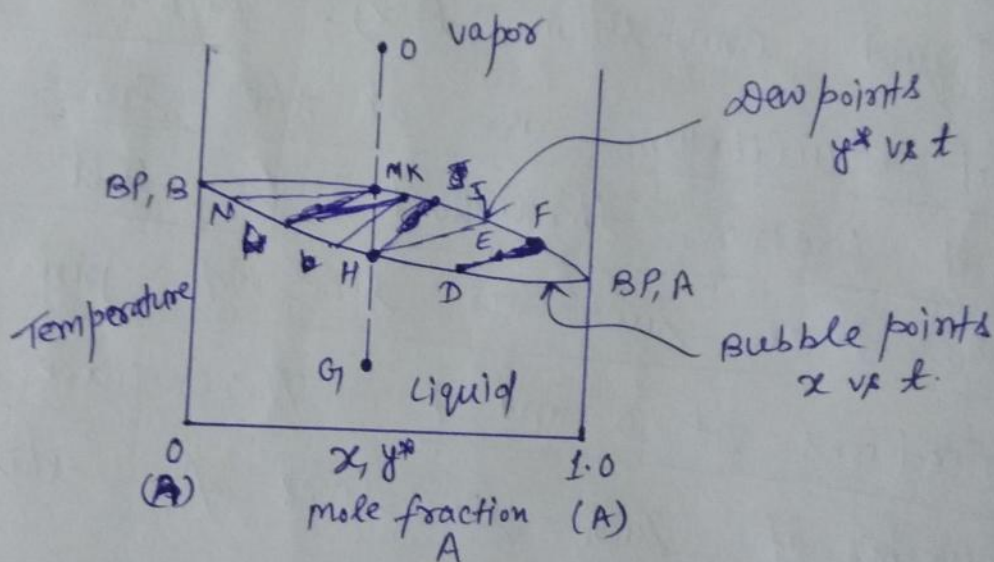 O vapor
Dew points
y* vs t
BP, B
M K
I
F
N
E
H
D
BP, A
Temperature
Bubble points
x vs t.
G
Liquid
0
x, y*
1.0
(A)
mole fraction (A)
A